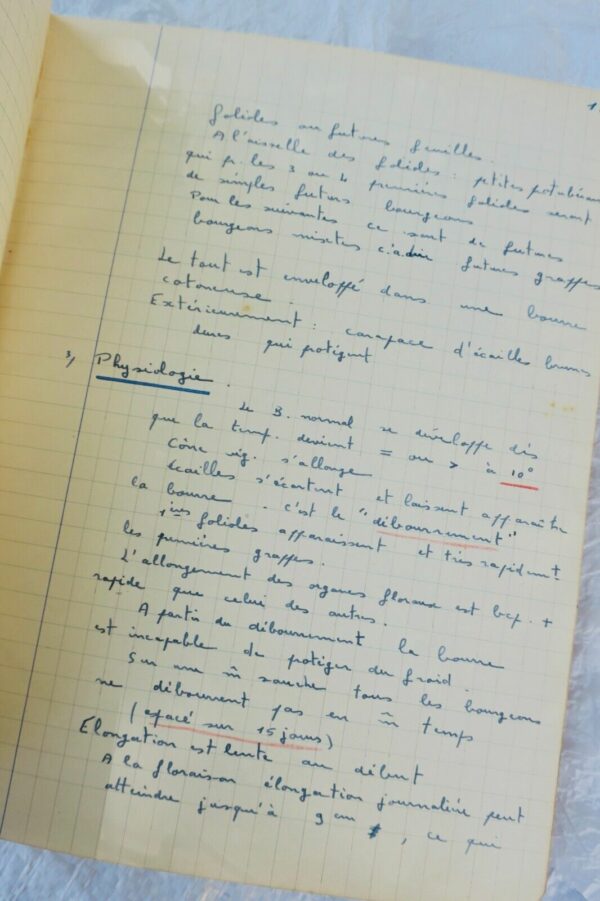 1
folioles ou futures feuilles.
A l'aisselle des folioles : petites protubéran
qui p. les 3 ou 4 premières folioles seront
de simples futurs bourgeons
Pour les suivantes ce sont de futures
bourgeons mixtes c.à.dire futures grappes
Le tout est enveloppé dans une bourre
cotonneuse.
Extérieurement : carapace d'écailles brunes
dures qui protègent
3) Physiologie.
Le B. normal se développe dès
que la temp. devient = ou > à 10°
Cône vég. s'allonge
écailles s'écartent et laissent apparaître
la bourre - c'est le "débourrement"
1ères folioles apparaissent et très rapidemt
les premières grappes.
L'allongement des organes floraux est bcp. +
rapide que celui des autres.
A partir du débourrement la bourre
est incapable de protéger du froid.
Sur une m̂ souche tous les bourgeons
ne débourrent pas en m̂ temps
(espacé sur 15 jours)
Elongation est lente au début
A la floraison élongation journalière peut
atteindre jusqu'à 9 cm, ce qui